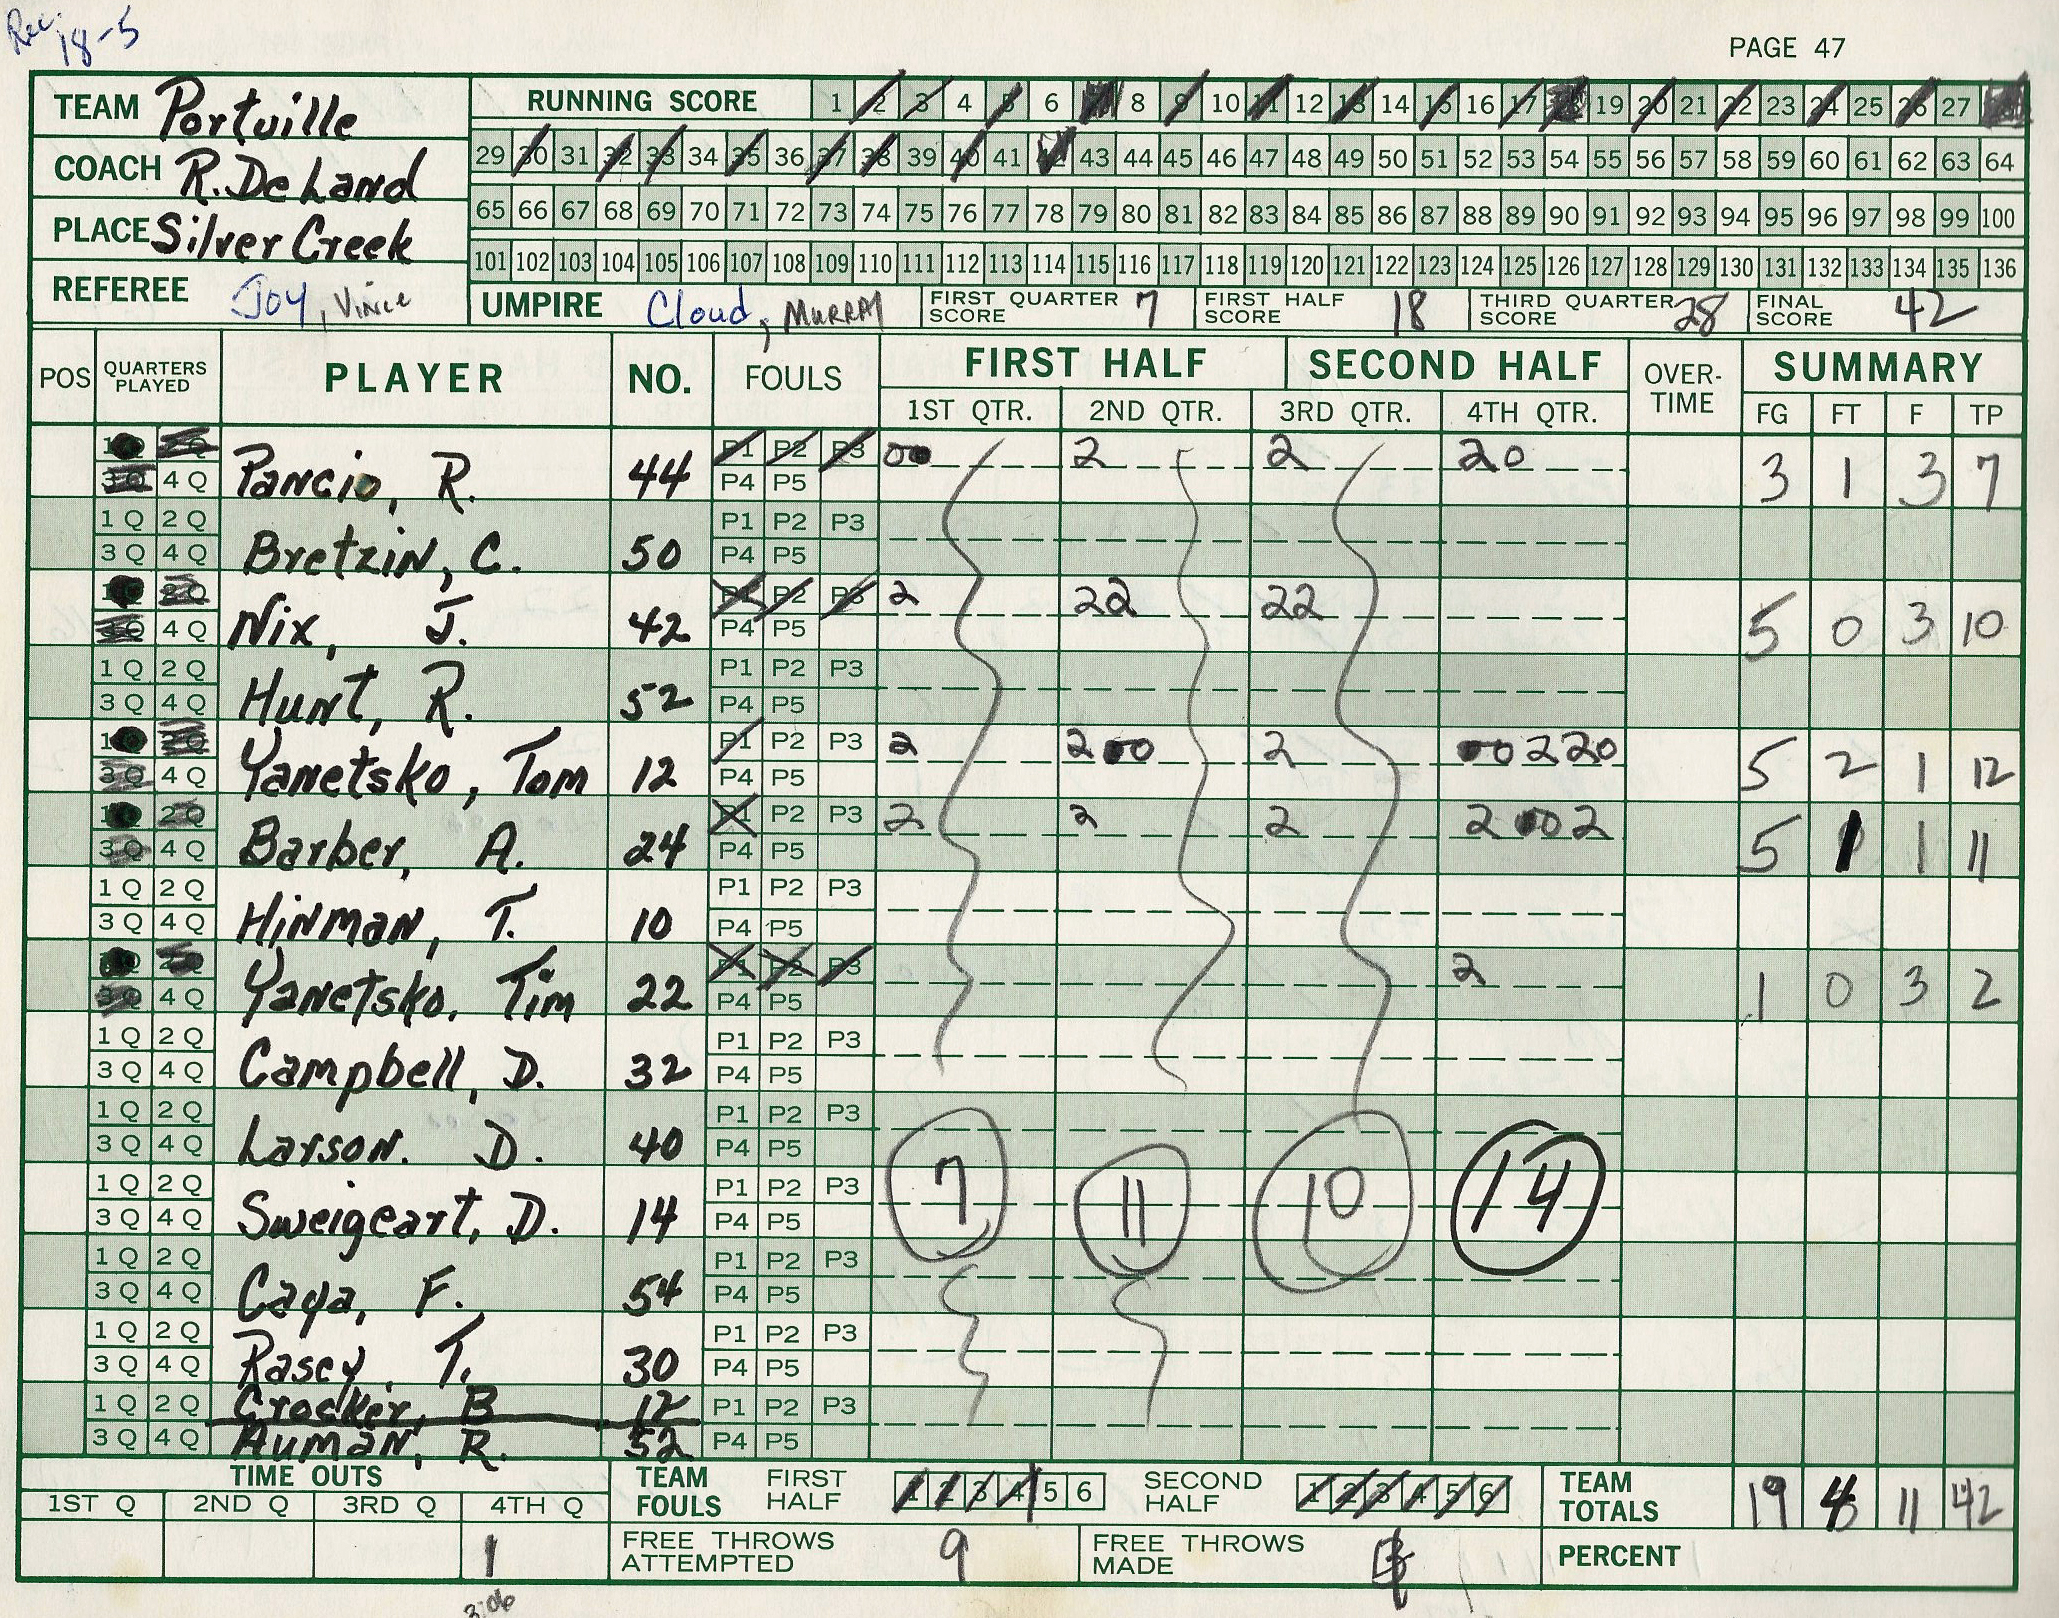 Rec. 18-5
PAGE 47
TEAM Portville
COACH R. DeLand
PLACE Silver Creek
REFEREE Joy, Vince
RUNNING SCORE 1 2 3 4 5 6 7 8 9 10 11 12 13 14 15 16 17 18 19 20 21 22 23 24 25 26 27 28
29 30 31 32 33 34 35 36 37 38 39 40 41 42 43 44 45 46 47 48 49 50 51 52 53 54 55 56 57 58 59 60 61 62 63 64
65 66 67 68 69 70 71 72 73 74 75 76 77 78 79 80 81 82 83 84 85 86 87 88 89 90 91 92 93 94 95 96 97 98 99 100
101 102 103 104 105 106 107 108 109 110 111 112 113 114 115 116 117 118 119 120 121 122 123 124 125 126 127 128 129 130 131 132 133 134 135 136
UMPIRE Cloud, Murray FIRST QUARTER SCORE 7 FIRST HALF SCORE 18 THIRD QUARTER SCORE 28 FINAL SCORE 42
POS QUARTERS PLAYED PLAYER NO. FOULS FIRST HALF SECOND HALF OVER-TIME SUMMARY
1ST QTR. 2ND QTR. 3RD QTR. 4TH QTR. FG FT F TP
1Q 2Q P1 P2 P3 00 2 2 20
3Q 4Q Pancio, R. 44 P4 P5 3 1 3 7
1Q 2Q P1 P2 P3
3Q 4Q Bretzin, C. 50 P4 P5
1Q 2Q P1 P2 P3 2 22 22
3Q 4Q Nix, J. 42 P4 P5 5 0 3 10
1Q 2Q P1 P2 P3
3Q 4Q Hunt, R. 52 P4 P5
1Q 2Q P1 P2 P3 2 200 2 00220
3Q 4Q Yanetsko, Tom 12 P4 P5 5 2 1 12
1Q 2Q P1 P2 P3 2 2 2 2002
3Q 4Q Barber, A. 24 P4 P5 5 1 1 11
1Q 2Q P1 P2 P3
3Q 4Q Hinman, T. 10 P4 P5
1Q 2Q P1 P2 P3 2
3Q 4Q Yanetsko, Tim 22 P4 P5 1 0 3 2
1Q 2Q P1 P2 P3
3Q 4Q Campbell, D. 32 P4 P5
1Q 2Q P1 P2 P3
3Q 4Q Larson. D. 40 P4 P5
1Q 2Q P1 P2 P3 7 11 10 14
3Q 4Q Sweigeart, D. 14 P4 P5
1Q 2Q P1 P2 P3
3Q 4Q Caya, F. 54 P4 P5
1Q 2Q P1 P2 P3
3Q 4Q Rasey, T. 30 P4 P5
1Q 2Q Crocker, B 12 P1 P2 P3
3Q 4Q Auman, R. 52 P4 P5
TIME OUTS TEAM FOULS FIRST HALF 1 2 3 4 5 6 SECOND HALF 1 2 3 4 5 6 TEAM TOTALS 19 4 11 42
1ST Q 2ND Q 3RD Q 4TH Q
1 FREE THROWS ATTEMPTED 9 FREE THROWS MADE PERCENT